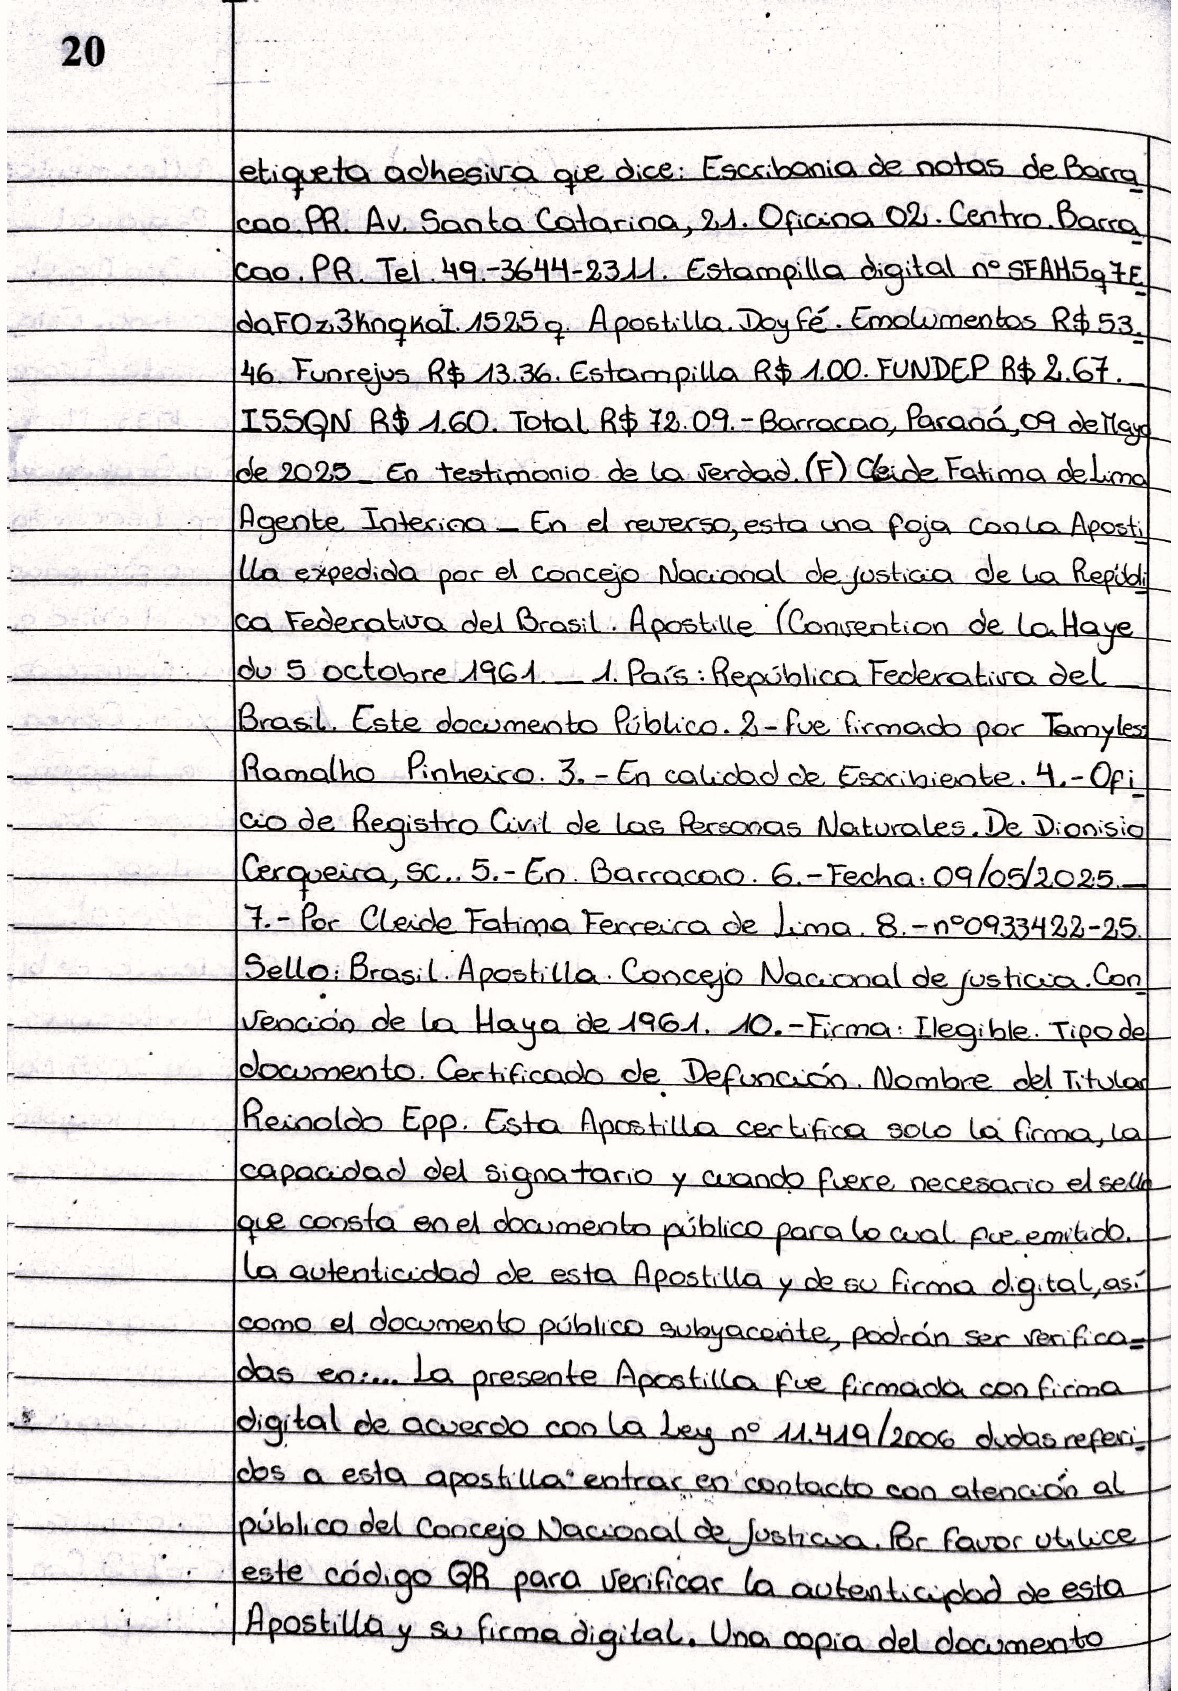 20
etiqueta adhesiva que dice: Escribania de notas de Barra
cao. PR. Av. Santa Catarina, 21. Oficina 02. Centro. Barra
cao. PR. Tel. 49.-3644-2311. Estampilla digital nº SFAH5q7E
daFOz3KnqKaI.1525q. Apostilla. Doy fé. Emolumentos R$ 53.
46. Funrejus R$ 13.36. Estampilla R$ 1.00. FUNDEP R$ 2.67.
ISSQN R$ 1.60. Total R$ 72.09.- Barracao, Paraná, 09 de Mayo
de 2025_ En testimonio de la verdad. (F) Cleide Fatima de Lima
Agente Interina _ En el reverso, esta una foja con la Aposti
lla expedida por el concejo Nacional de justicia de la Repúbli
ca Federativa del Brasil. Apostille (Convention de la Haye
du 5 octobre 1961. _ 1. País: República Federativa del
Brasil. Este documento Público. 2- fue firmado por Tamyles
Ramalho Pinheiro. 3.- En calidad de Escribiente. 4.- Ofi
cio de Registro Civil de las Personas Naturales. De Dionisio
Cerqueira, SC.. 5.- En. Barracao. 6.- Fecha: 09/05/2025._
7.- Por Cleide Fatima Ferreira de Lima. 8.- nº0933422-25.
Sello: Brasil. Apostilla. Concejo Nacional de justicia. Con
vención de la Haya de 1961. 10.- Firma: Ilegible. Tipo de
documento. Certificado de Defunción. Nombre del Titular
Reinoldo Epp. Esta Apostilla certifica solo la firma, la
capacidad del signatario y cuando fuere necesario el sello
que consta en el documento público para lo cual fue emitido.
La autenticidad de esta Apostilla y de su firma digital, así
como el documento público subyacente, podrán ser verifica=
das en:... La presente Apostilla fue firmada con firma
digital de acuerdo con la Ley nº 11.419/2006 dudas referi-
dos a esta apostilla entrar en contacto con atención al
público del Concejo Nacional de Justicia. Por favor utilice
este código QR para verificar la autenticidad de esta
Apostilla y su firma digital. Una copia del documento